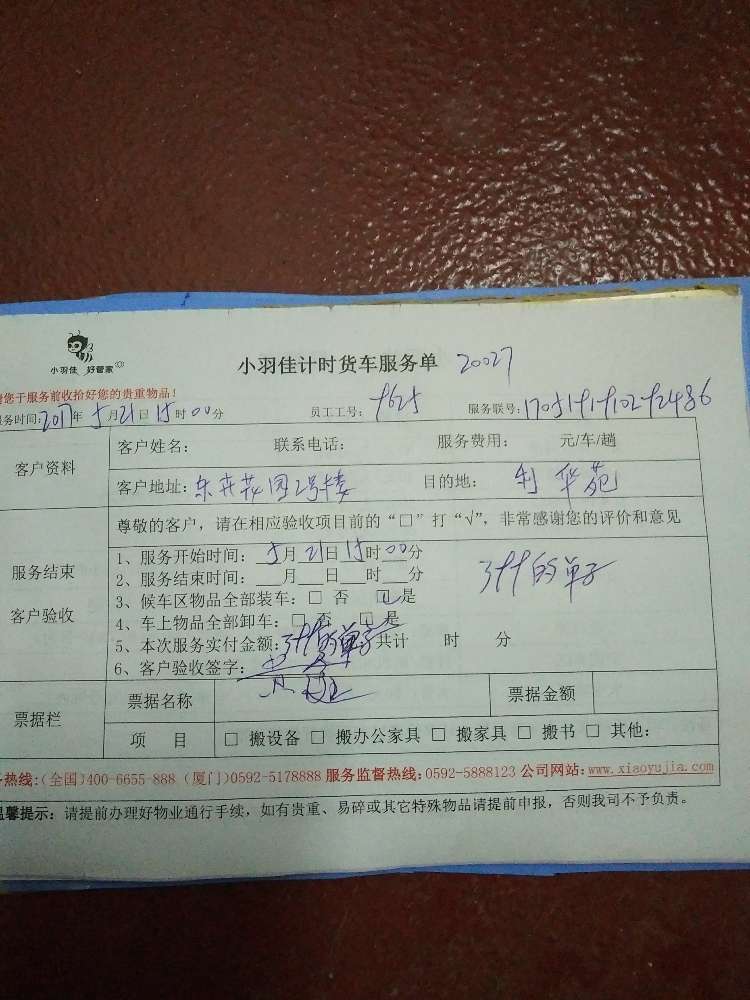 小羽佳 好管家
小羽佳计时货车服务单 20027
请您于服务前收拾好您的贵重物品!
服务时间:2017年5月21日15时00分 员工工号: 服务联号:
客户资料
客户姓名: 联系电话: 服务费用: 元/车/趟
客户地址:东井花园2号楼 目的地: 利华苑
服务结束
客户验收
尊敬的客户，请在相应验收项目前的“□”打“√”，非常感谢您的评价和意见
1、服务开始时间: 5月21日15时00分
2、服务结束时间: 月 日 时 分
3、候车区物品全部装车: □ 否 □是
4、车上物品全部卸车: □ 否 □是
的单子
5、本次服务实付金额: 的单子 共计 时 分
6、客户验收签字:
票据栏
票据名称 票据金额
项 目 □ 搬设备 □ 搬办公家具 □ 搬家具 □ 搬书 □ 其他:
务热线:(全国)400-6655-888 (厦门)0592-5178888 服务监督热线:0592-5888123 公司网站:www.xiaoyujia.com
温馨提示: 请提前办理好物业通行手续，如有贵重、易碎或其它特殊物品请提前申报，否则我司不予负责。